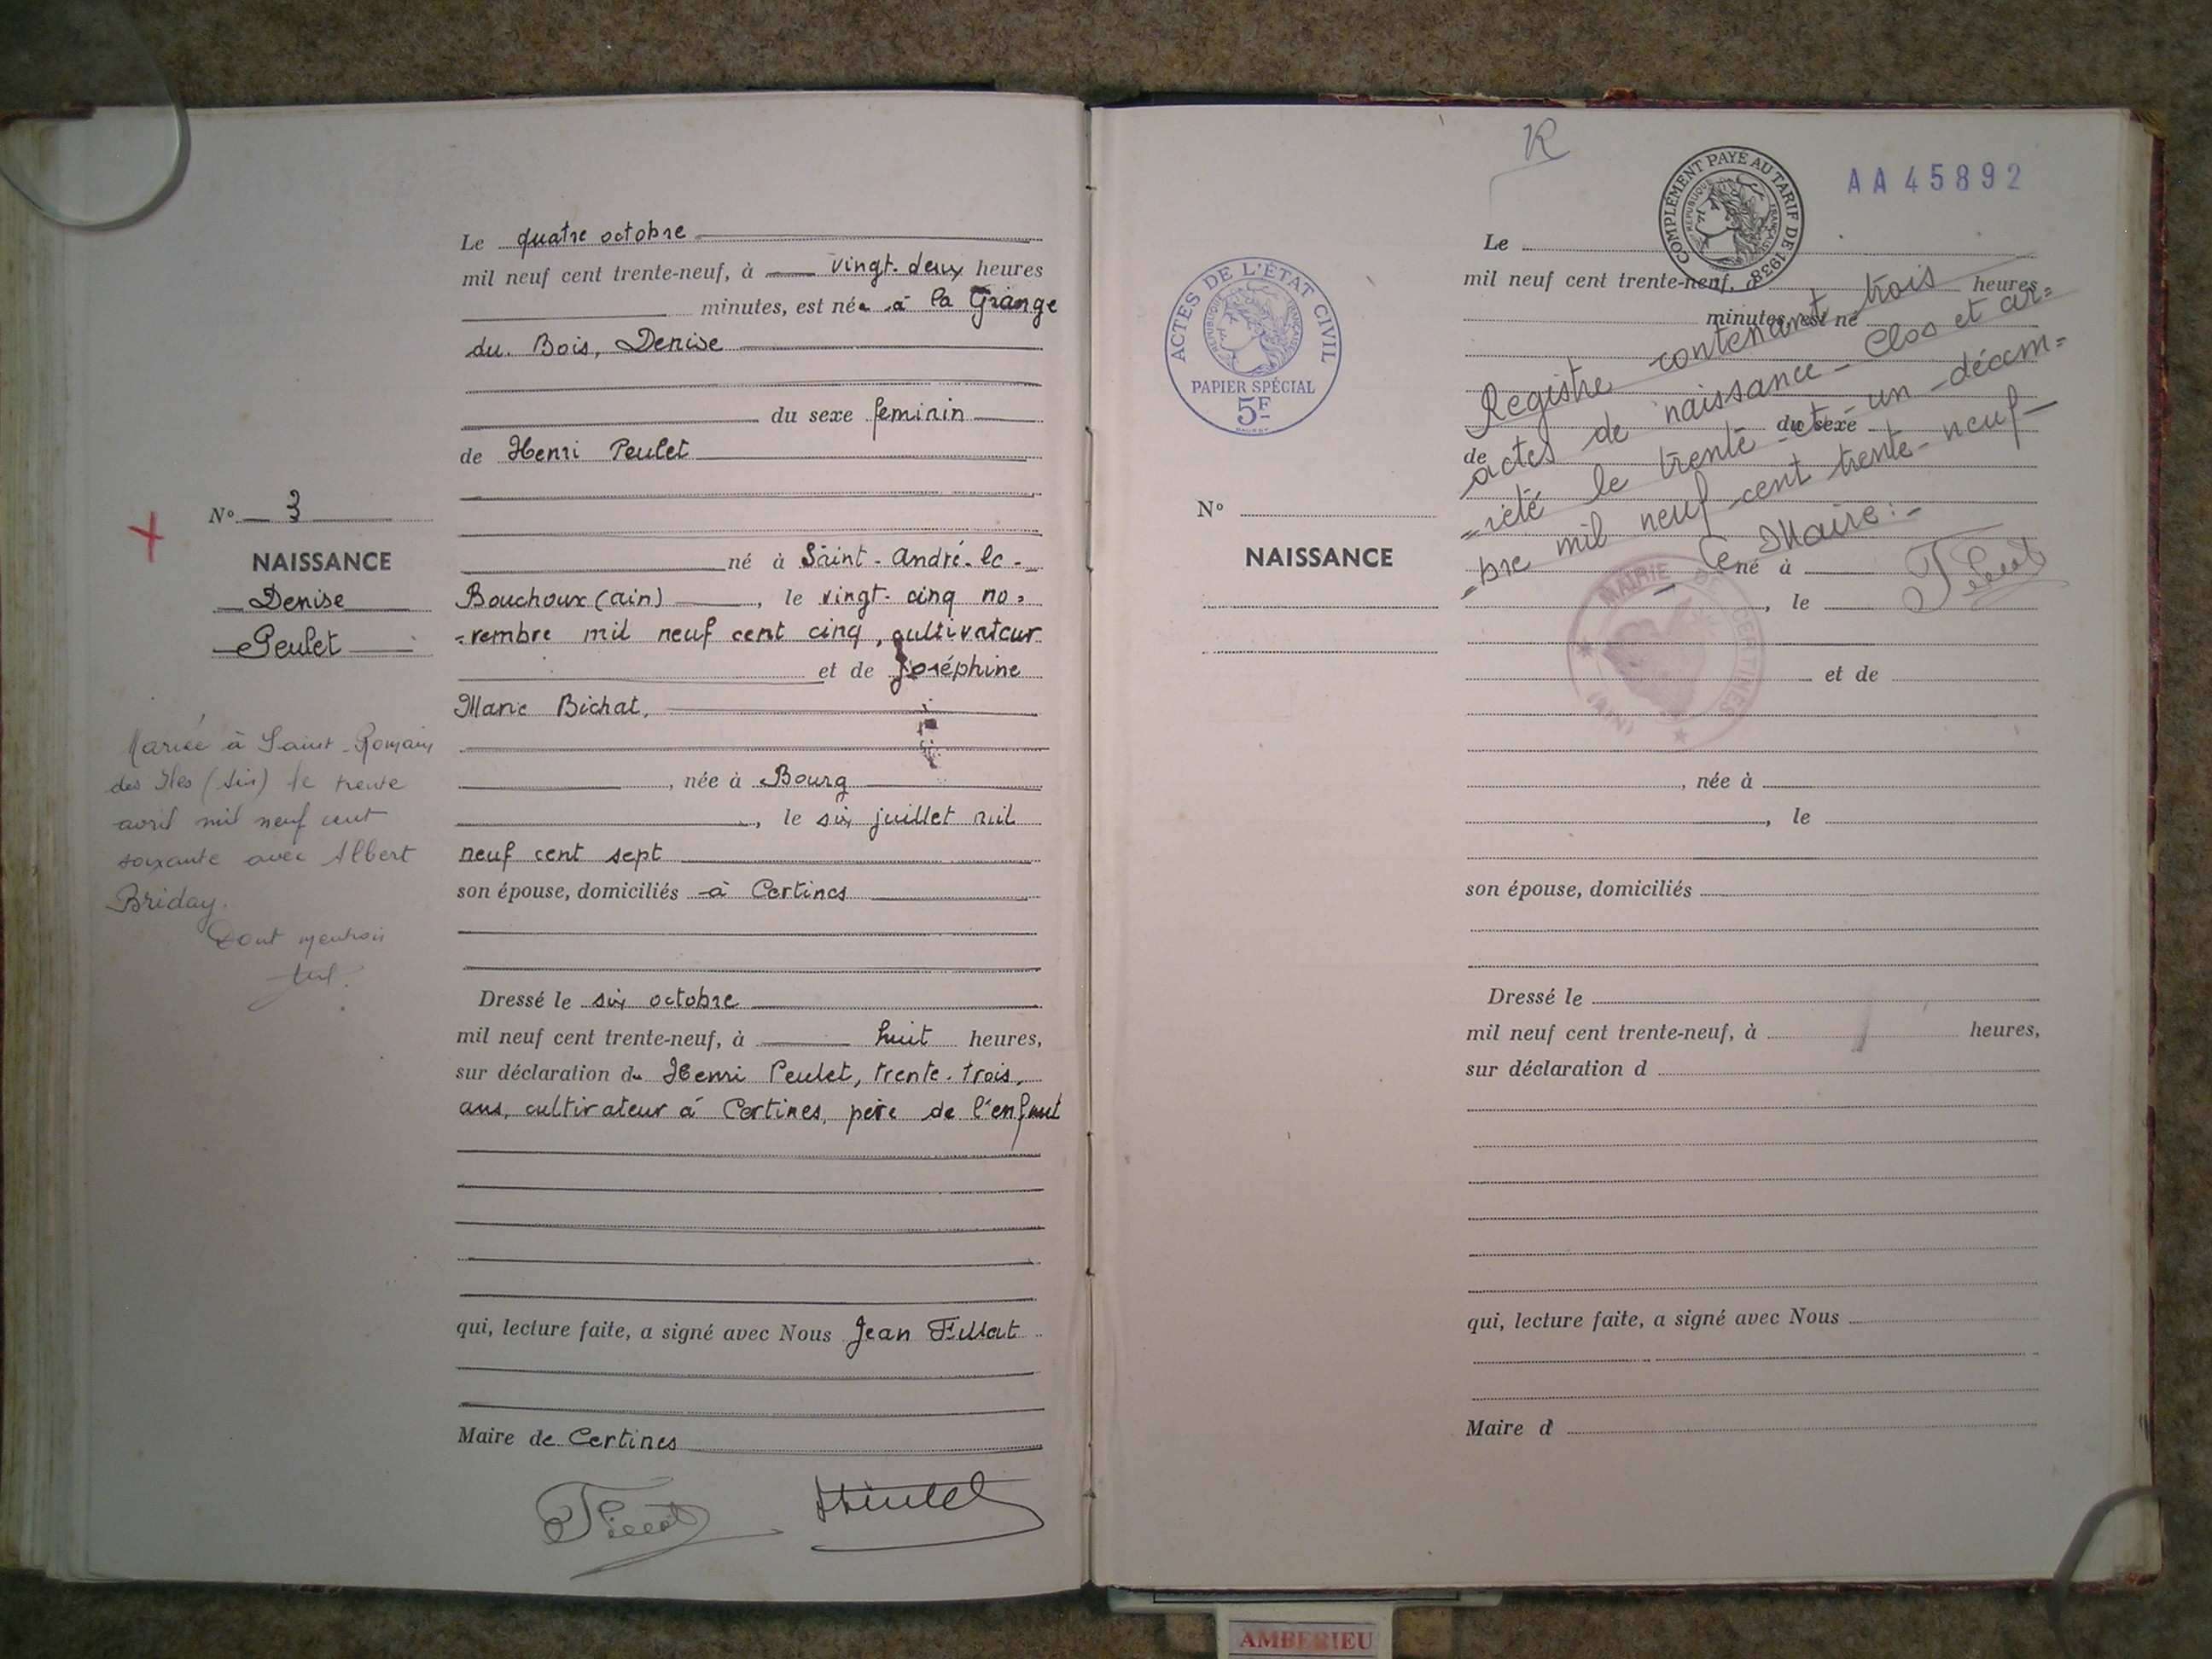 Le quatre octobre
mil neuf cent trente-neuf, à vingt-deux heures
minutes, est née à la Grange
du Bois, Denise
du sexe feminin
de Henri Peulet
né à Saint-André-le-
Bouchoux (ain), le vingt-cinq no=
=vembre mil neuf cent cinq, cultivateur
et de Joséphine
Marie Bichat,
, née à Bourg
, le six juillet mil
neuf cent sept
son épouse, domiciliés à Certines
Dressé le six octobre
mil neuf cent trente-neuf, à huit heures,
sur déclaration du Henri Peulet, trente-trois,
ans, cultivateur à Certines, père de l'enfant
qui, lecture faite, a signé avec Nous Jean Fillat
Maire de Certines
N° 3
NAISSANCE
Denise
Peulet
Mariée à Saint-Romain
des Iles (Ain) le trente
avril mil neuf cent
soixante avec Albert
Briday.
Dont mention
R
COMPLÉMENT PAYÉ AU TARIF DE 1938
RÉPUBLIQUE FRANÇAISE
AA45892
ACTES DE L'ÉTAT CIVIL
RÉPUBLIQUE FRANÇAISE
PAPIER SPÉCIAL
5F
N°
NAISSANCE
Le
mil neuf cent trente-neuf, à heures
minutes, est né
du sexe
de
né à
, le
et de
, née à
, le
son épouse, domiciliés
Dressé le
mil neuf cent trente-neuf, à heures,
sur déclaration d
qui, lecture faite, a signé avec Nous
Maire d
Registre contenant trois
actes de naissance - Clos et ar=
=rêté le trente-et-un-décem=
=bre mil neuf-cent trente-neuf-
Le Maire:-
MAIRIE DE CERTINES
(AIN)
AMBERIEU